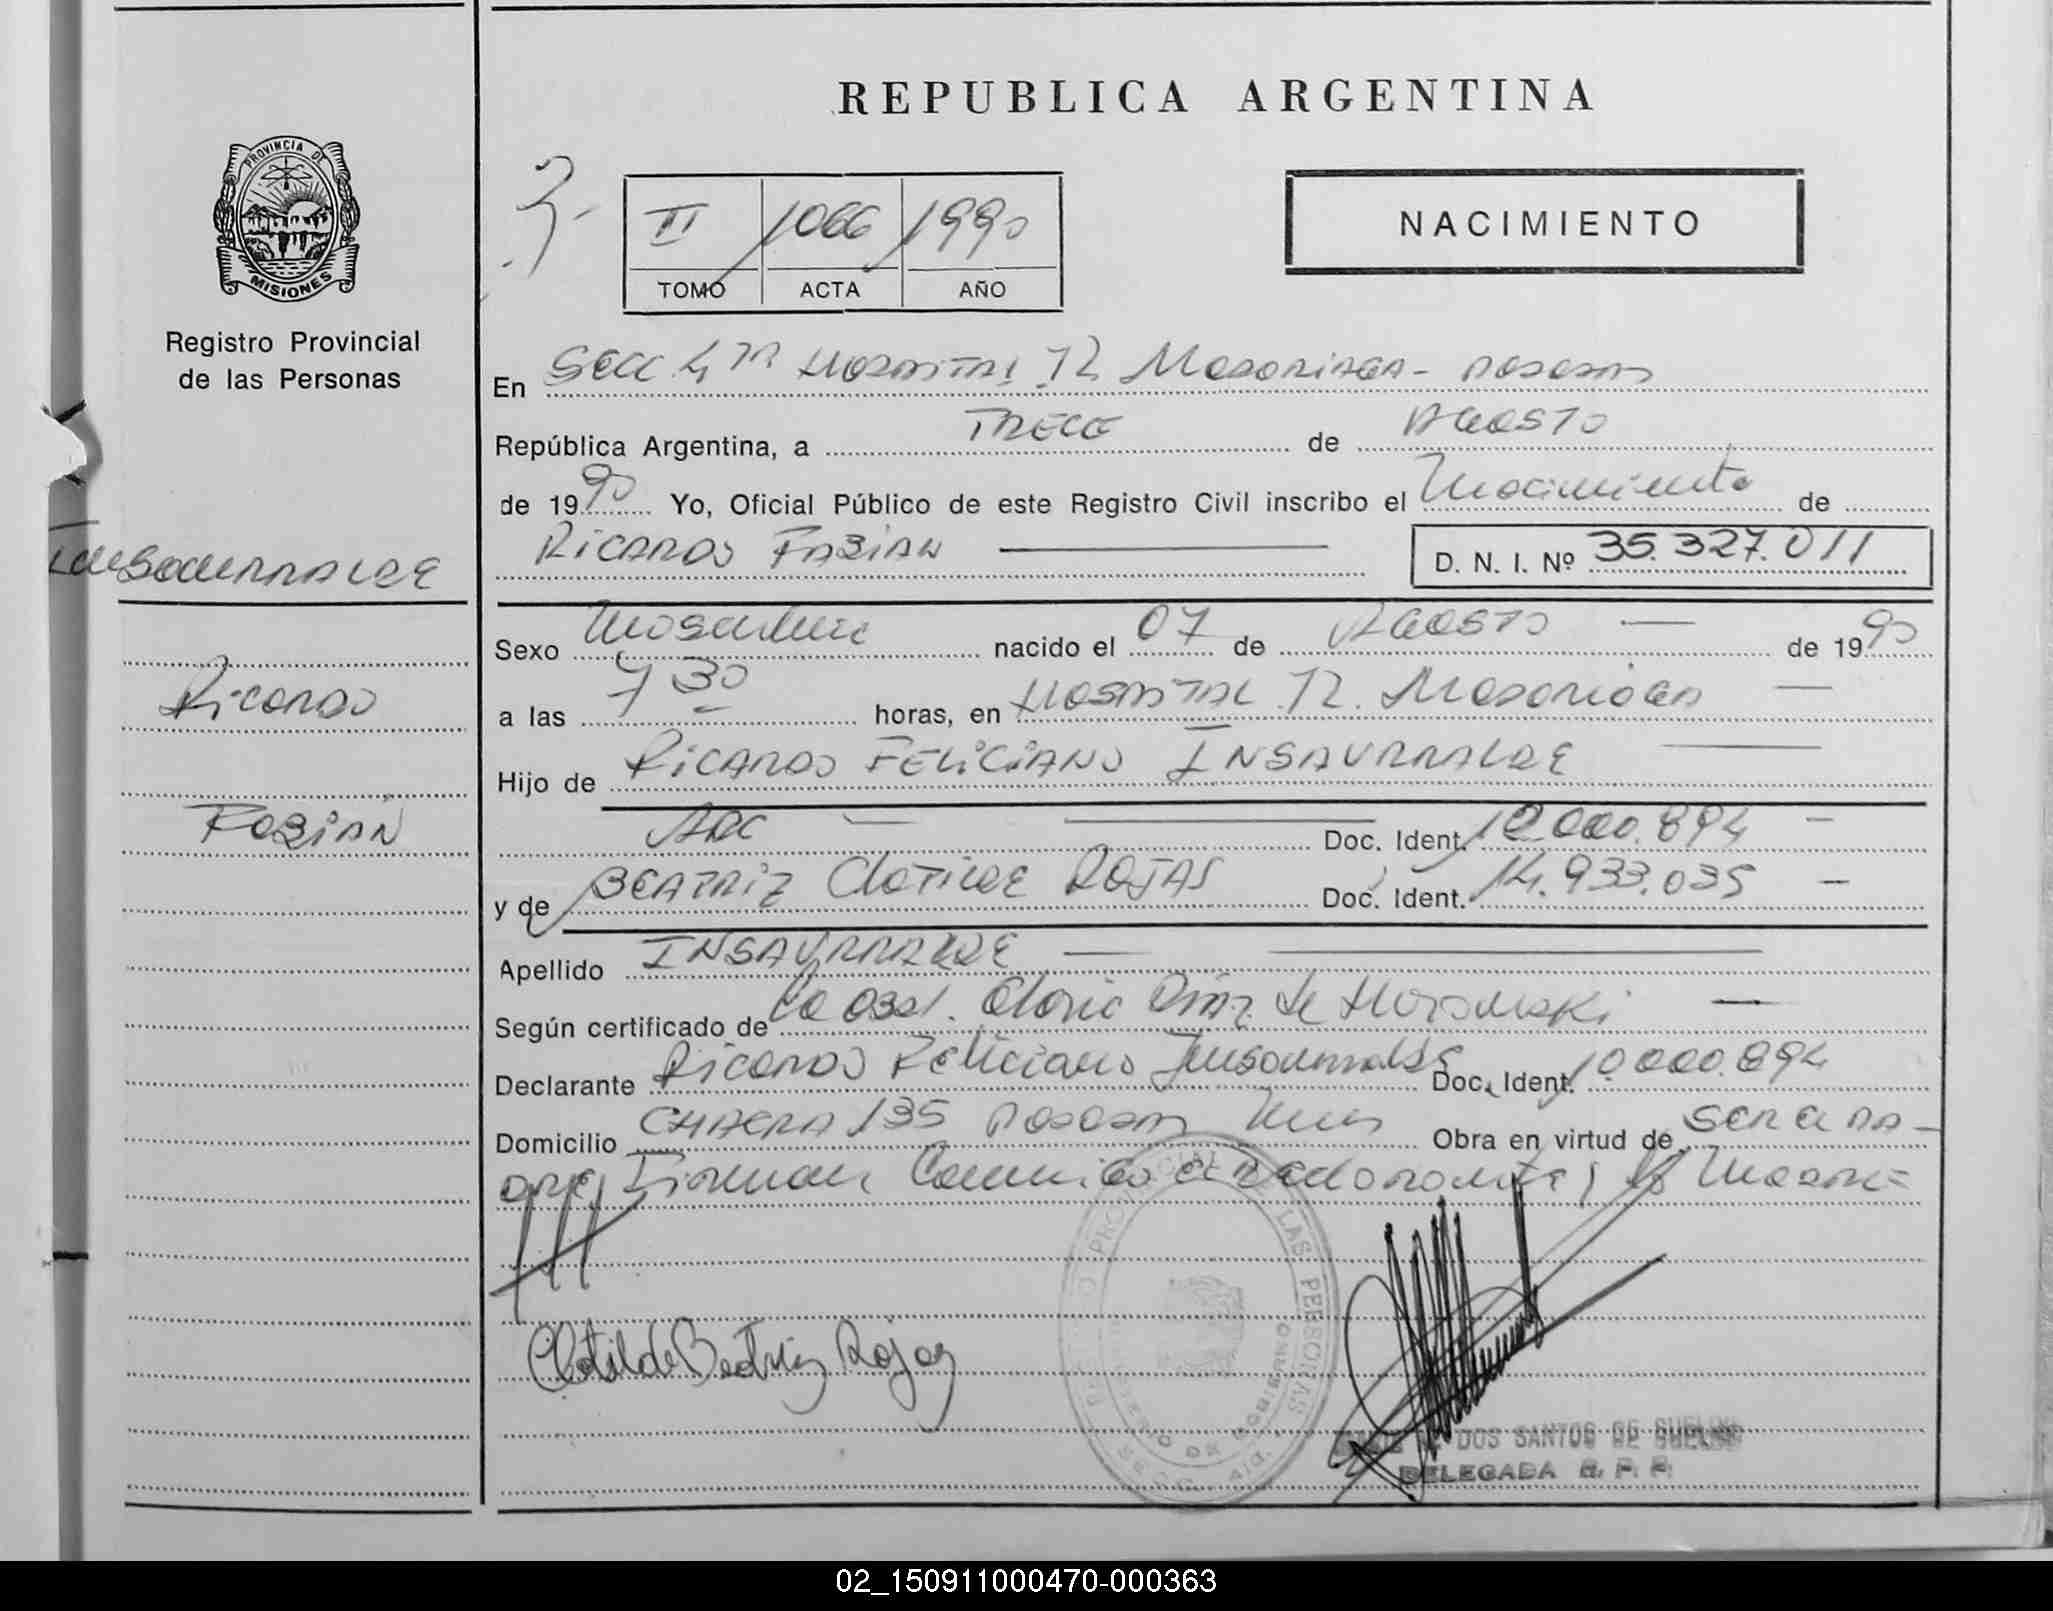 REPUBLICA ARGENTINA
PROVINCIA DE
MISIONES
Registro Provincial
de las Personas
II 1066 1990
TOMO ACTA AÑO
NACIMIENTO
En SECC 4ta HOSPITAL R. Madariaga - POSADAS
República Argentina, a TRECE de AGOSTO
de 1990 Yo, Oficial Público de este Registro Civil inscribo el Nacimiento de
RICARDO FABIAN D. N. I. Nº 35.327.011
INSAURRALDE
Sexo Masculino nacido el 07 de AGOSTO de 1990
a las 7 30 horas, en HOSPITAL R. Madariaga
Ricardo
Hijo de RICARDO FELICIANO INSAURRALDE
ARG Doc. Ident. 10.000.894
FABIAN
y de BEATRIZ CLOTILDE ROJAS Doc. Ident. 14.933.035
Apellido INSAURRALDE
Según certificado de La Obst. Gloria Diaz de
Declarante Ricardo Feliciano Insaurralde Doc. Ident. 10.000.894
Domicilio CHACRA 135 POSADAS Obra en virtud de SER EL PA-
DRE, Firman el declarante y la Madre=
Clotilde Beatriz Rojas
REGISTRO PROVINCIAL DE LAS PERSONAS
MINISTERIO DE GOBIERNO
DOS SANTOS DE
DELEGADA R. P. P.
02_150911000470-000363